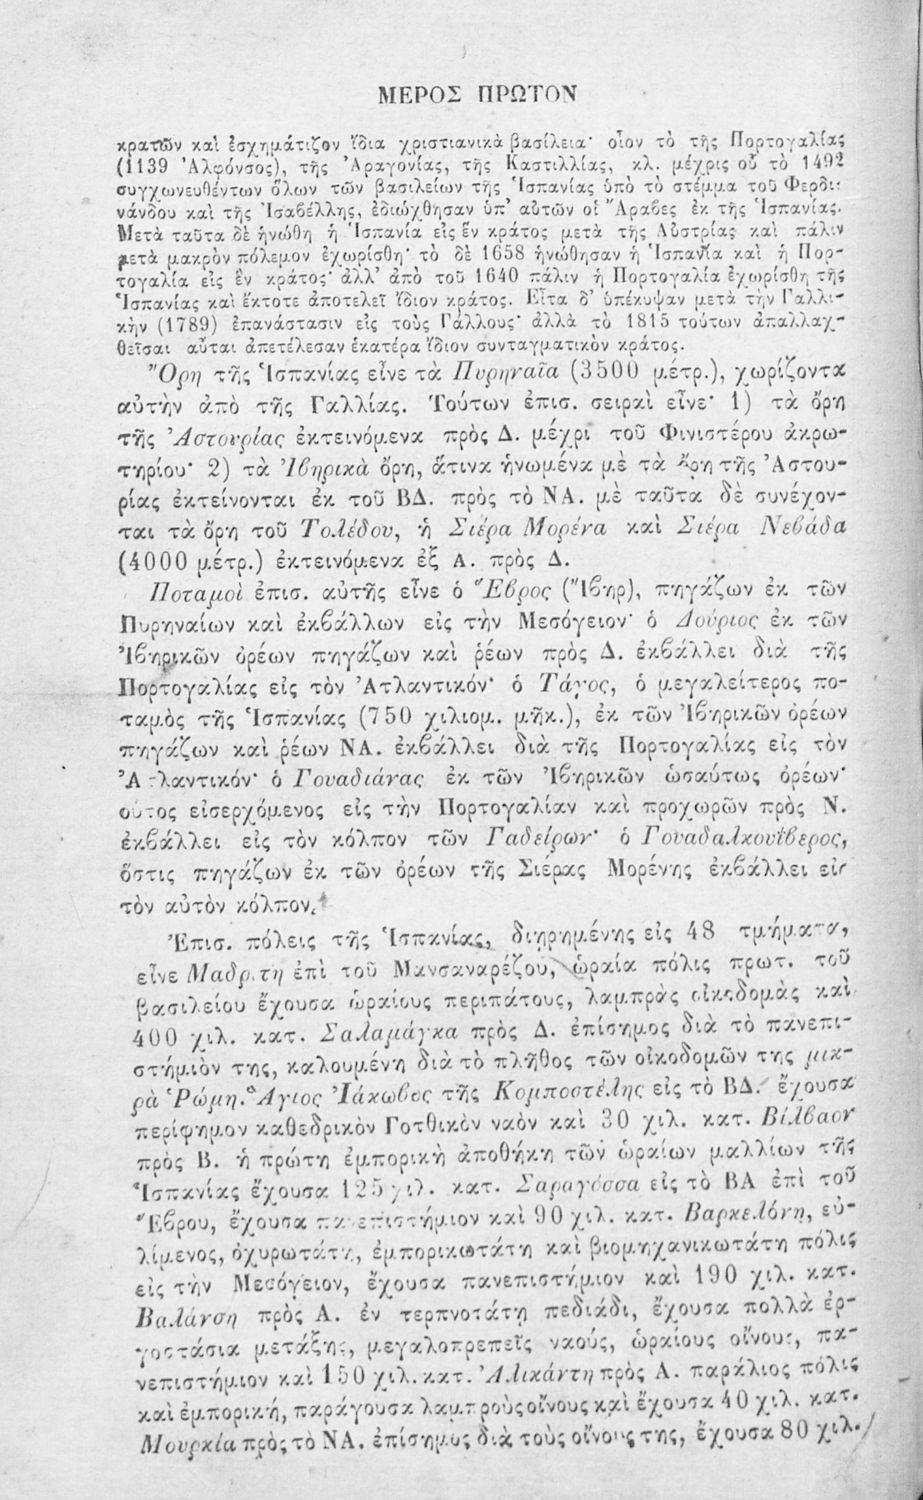 ΜΕΡΟΣ ΠΡΩΤΟΝ
κρατῶν καὶ ἐσχημάτιζον ἴδια χριστιανικὰ βασίλεια· οἷον τὸ τῆς Πορτογαλίας
(1139 Ἀλφόνσος), τῆς Ἀραγονίας, τῆς Καστιλλίας, κλ. μέχρις οὗ τὸ 1492
συγχωνευθέντων ὅλων τῶν βασιλείων τῆς Ἱσπανίας ὑπὸ τὸ στέμμα τοῦ Φερδι-
νάνδου καὶ τῆς Ἰσαβέλλης, ἐδιώχθησαν ὑπ' αὐτῶν οἱ Ἄραβες ἐκ τῆς Ἱσπανίας.
Μετὰ ταῦτα δὲ ἡνώθη ἡ Ἱσπανία εἰς ἓν κράτος μετὰ τῆς Αὐστρίας καὶ πάλιν
μετὰ μακρὸν πόλεμον ἐχωρίσθη· τὸ δὲ 1658 ἡνώθησαν ἡ Ἱσπανία καὶ ἡ Πορ-
τογαλία εἰς ἓν κράτος· ἀλλ' ἀπὸ τοῦ 1640 πάλιν ἡ Πορτογαλία ἐχωρίσθη τῆς
Ἱσπανίας καὶ ἔκτοτε ἀποτελεῖ ἴδιον κράτος. Εἶτα δ' ὑπέκυψαν μετὰ τὴν Γαλλι-
κὴν (1789) ἐπανάστασιν εἰς τοὺς Γάλλους· ἀλλὰ τὸ 1815 τούτων ἀπαλλαχ-
θεῖσαι αὗται ἀπετέλεσαν ἑκατέρα ἴδιον συνταγματικὸν κράτος.
Ὄρη τῆς Ἱσπανίας εἶνε τὰ Πυρηναῖα (3500 μέτρ.), χωρίζοντα
αὐτὴν ἀπὸ τῆς Γαλλίας. Τούτων ἐπισ. σειραὶ εἶνε· 1) τὰ ὄρη
τῆς Ἀστουρίας ἐκτεινόμενα πρὸς Δ. μέχρι τοῦ Φινιστέρου ἀκρω-
τηρίου· 2) τὰ Ἰβηρικὰ ὄρη, ἅτινα ἡνωμένα μὲ τὰ ὄρη τῆς Ἀστου-
ρίας ἐκτείνονται ἐκ τοῦ ΒΔ. πρὸς τὸ ΝΑ. μὲ ταῦτα δὲ συνέχον-
ται τὰ ὄρη τοῦ Τολέδου, ἡ Σιέρα Μορένα καὶ Σιέρα Νεβάδα
(4000 μέτρ.) ἐκτεινόμενα ἐξ Α. πρὸς Δ.
Ποταμοὶ ἐπισ. αὐτῆς εἶνε ὁ Ἕβρος (Ἴβηρ), πηγάζων ἐκ τῶν
Πυρηναίων καὶ ἐκβάλλων εἰς τὴν Μεσόγειον· ὁ Δούριος ἐκ τῶν
Ἰβηρικῶν ὀρέων πηγάζων καὶ ῥέων πρὸς Δ. ἐκβάλλει διὰ τῆς
Πορτογαλίας εἰς τὸν Ἀτλαντικόν· ὁ Τάγος, ὁ μεγαλείτερος πο-
ταμὸς τῆς Ἱσπανίας (750 χιλιομ. μῆκ.), ἐκ τῶν Ἰβηρικῶν ὀρέων
πηγάζων καὶ ῥέων ΝΑ. ἐκβάλλει διὰ τῆς Πορτογαλίας εἰς τὸν
Ἀτλαντικόν· ὁ Γουαδιάνας ἐκ τῶν Ἰβηρικῶν ὡσαύτως ὀρέων·
οὗτος εἰσερχόμενος εἰς τὴν Πορτογαλίαν καὶ προχωρῶν πρὸς Ν.
ἐκβάλλει εἰς τὸν κόλπον τῶν Γαδείρων· ὁ Γουαδαλκουΐβερος,
ὅστις πηγάζων ἐκ τῶν ὀρέων τῆς Σιέρας Μορένης ἐκβάλλει εἰς
τὸν αὐτὸν κόλπον.
Ἐπισ. πόλεις τῆς Ἱσπανίας, διῃρημένης εἰς 48 τμήματα,
εἶνε Μαδρίτη ἐπὶ τοῦ Μανσαναρέζου, ὡραία πόλις πρωτ. τοῦ
βασιλείου ἔχουσα ὡραίους περιπάτους, λαμπρὰς οἰκοδομὰς καὶ
400 χιλ. κατ. Σαλαμάγκα πρὸς Δ. ἐπίσημος διὰ τὸ πανεπι-
στήμιόν της, καλουμένη διὰ τὸ πλῆθος τῶν οἰκοδομῶν της μικ-
ρὰ Ῥώμη. Ἅγιος Ἰάκωβος τῆς Κομποστέλης εἰς τὸ ΒΔ. ἔχουσα
περίφημον καθεδρικὸν Γοτθικὸν ναὸν καὶ 30 χιλ. κατ. Βίλβαον
πρὸς Β. ἡ πρώτη ἐμπορικὴ ἀποθήκη τῶν ὡραίων μαλλίων τῆς
Ἱσπανίας ἔχουσα 125 χιλ. κατ. Σαραγόσσα εἰς τὸ ΒΑ ἐπὶ τοῦ
Ἕβρου, ἔχουσα πανεπιστήμιον καὶ 90 χιλ. κατ. Βαρκελόνη, εὐ-
λίμενος, ὀχυρωτάτη, ἐμπορικωτάτη καὶ βιομηχανικωτάτη πόλις
εἰς τὴν Μεσόγειον, ἔχουσα πανεπιστήμιον καὶ 190 χιλ. κατ.
Βαλάνση πρὸς Α. ἐν τερπνοτάτῃ πεδιάδι, ἔχουσα πολλὰ ἐρ-
γοστάσια μετάξης, μεγαλοπρεπεῖς ναούς, ὡραίους οἴνους, πα-
νεπιστήμιον καὶ 150 χιλ. κατ. Ἀλικάντη πρὸς Α. παράλιος πόλις
καὶ ἐμπορική, παράγουσα λαμπροὺς οἴνους καὶ ἔχουσα 40 χιλ. κατ.
Μουρκία πρὸς τὸ ΝΑ. ἐπίσημος διὰ τοὺς οἴνους της, ἔχουσα 80 χιλ.